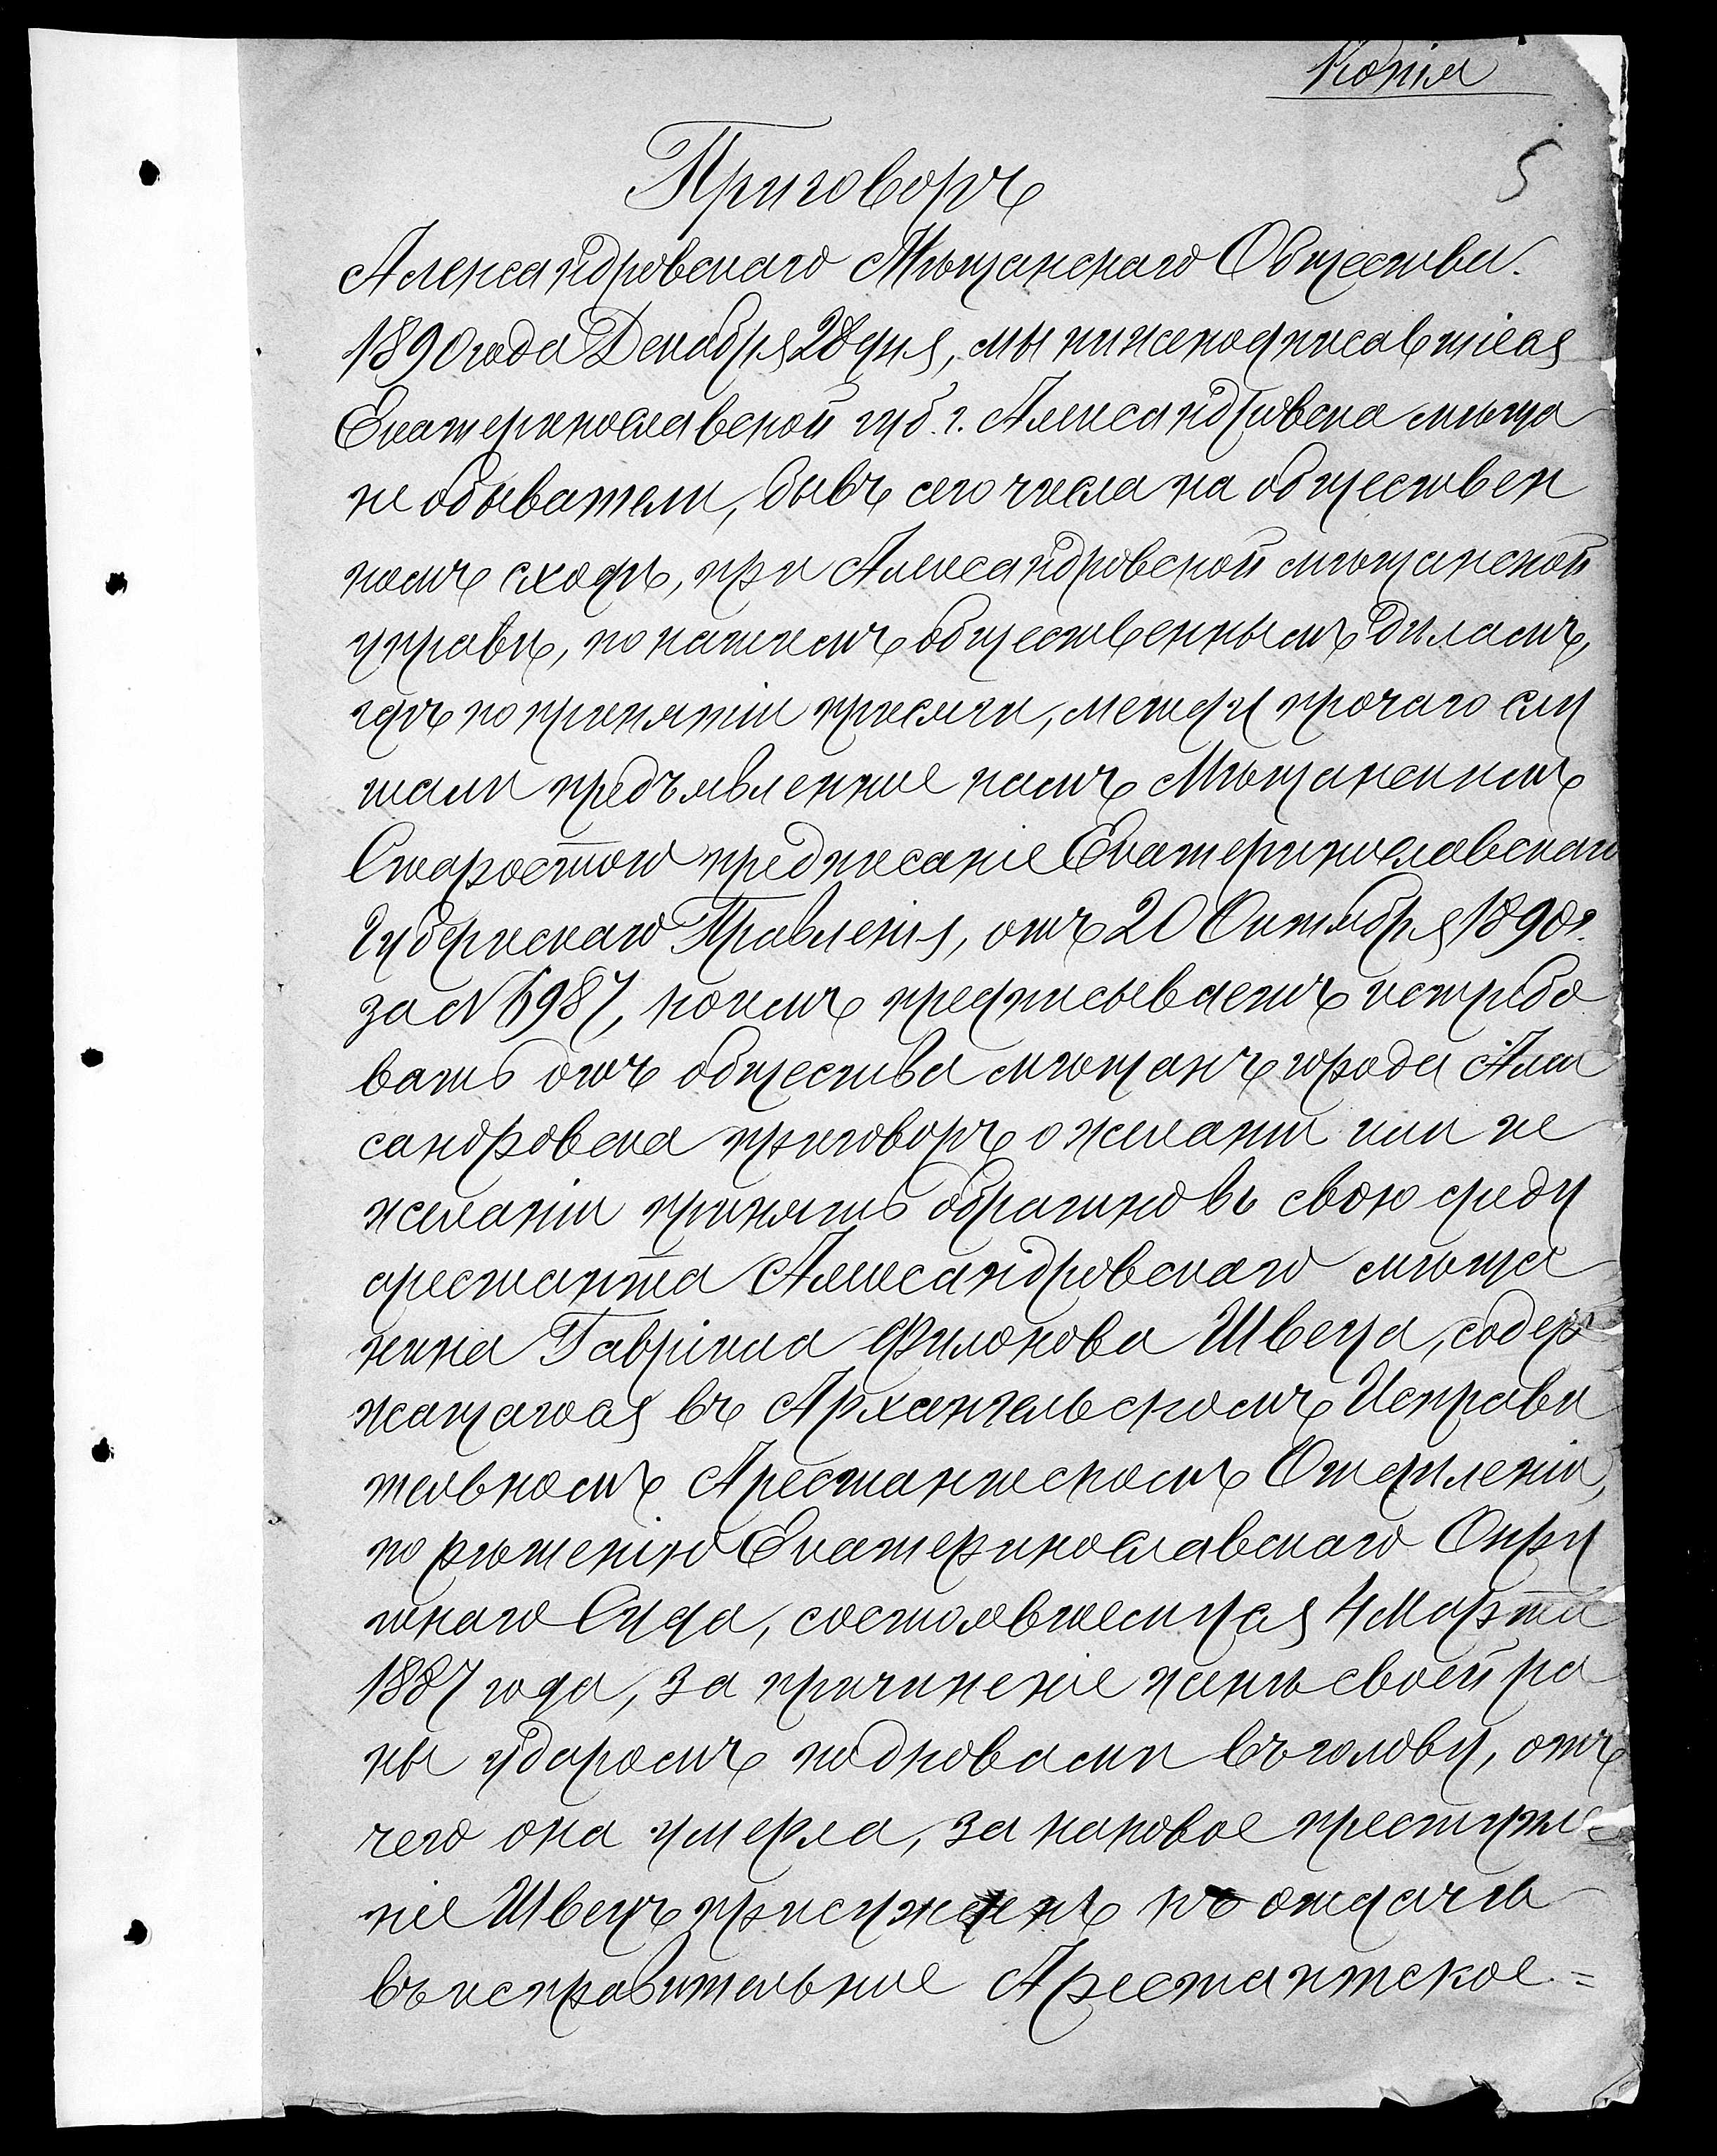 Копія
5
Приговоръ
Александровскаго Мѣщанскаго Общества.
1890 года Декабря 28 дня, мы нижеподписавшіеся
Екатеринославской губ. г. Александровска мѣща
не обыватели, бывъ сего числа на обществен
номъ сходѣ, при Александровской мѣщанской
управѣ, по нашимъ общественнымъ дѣламъ,
гдѣ по принятіи присяги, между прочаго слу
шали предъявленное намъ Мѣщанскимъ
Старостою предписаніе Екатеринославскаго
Губернскаго Правленія, отъ 20 Октября 1890 г.
за № 6987, коимъ предписываетъ истребо
вать отъ общества мѣщанъ города Алек
сандровска приговоръ о желаніи или не
желаніи принять обратно въ свою среду
арестанта Александровскаго мѣща
нина Гавріила Филонова Швеца, содер
жащагося въ Архангельскомъ Исправи
тельномъ Арестантскомъ Отдѣленіи,
по рѣшенію Екатеринославскаго Окру
жнаго Суда, состоявшемуся 4 Марта
1887 года, за причиненіе женѣ своей ра
ны ударомъ подковами въ голову, отъ
чего она умерла, за каковое преступле
ніе Швецъ присужденъ къ отдачѣ
въ исправительное Арестантское =